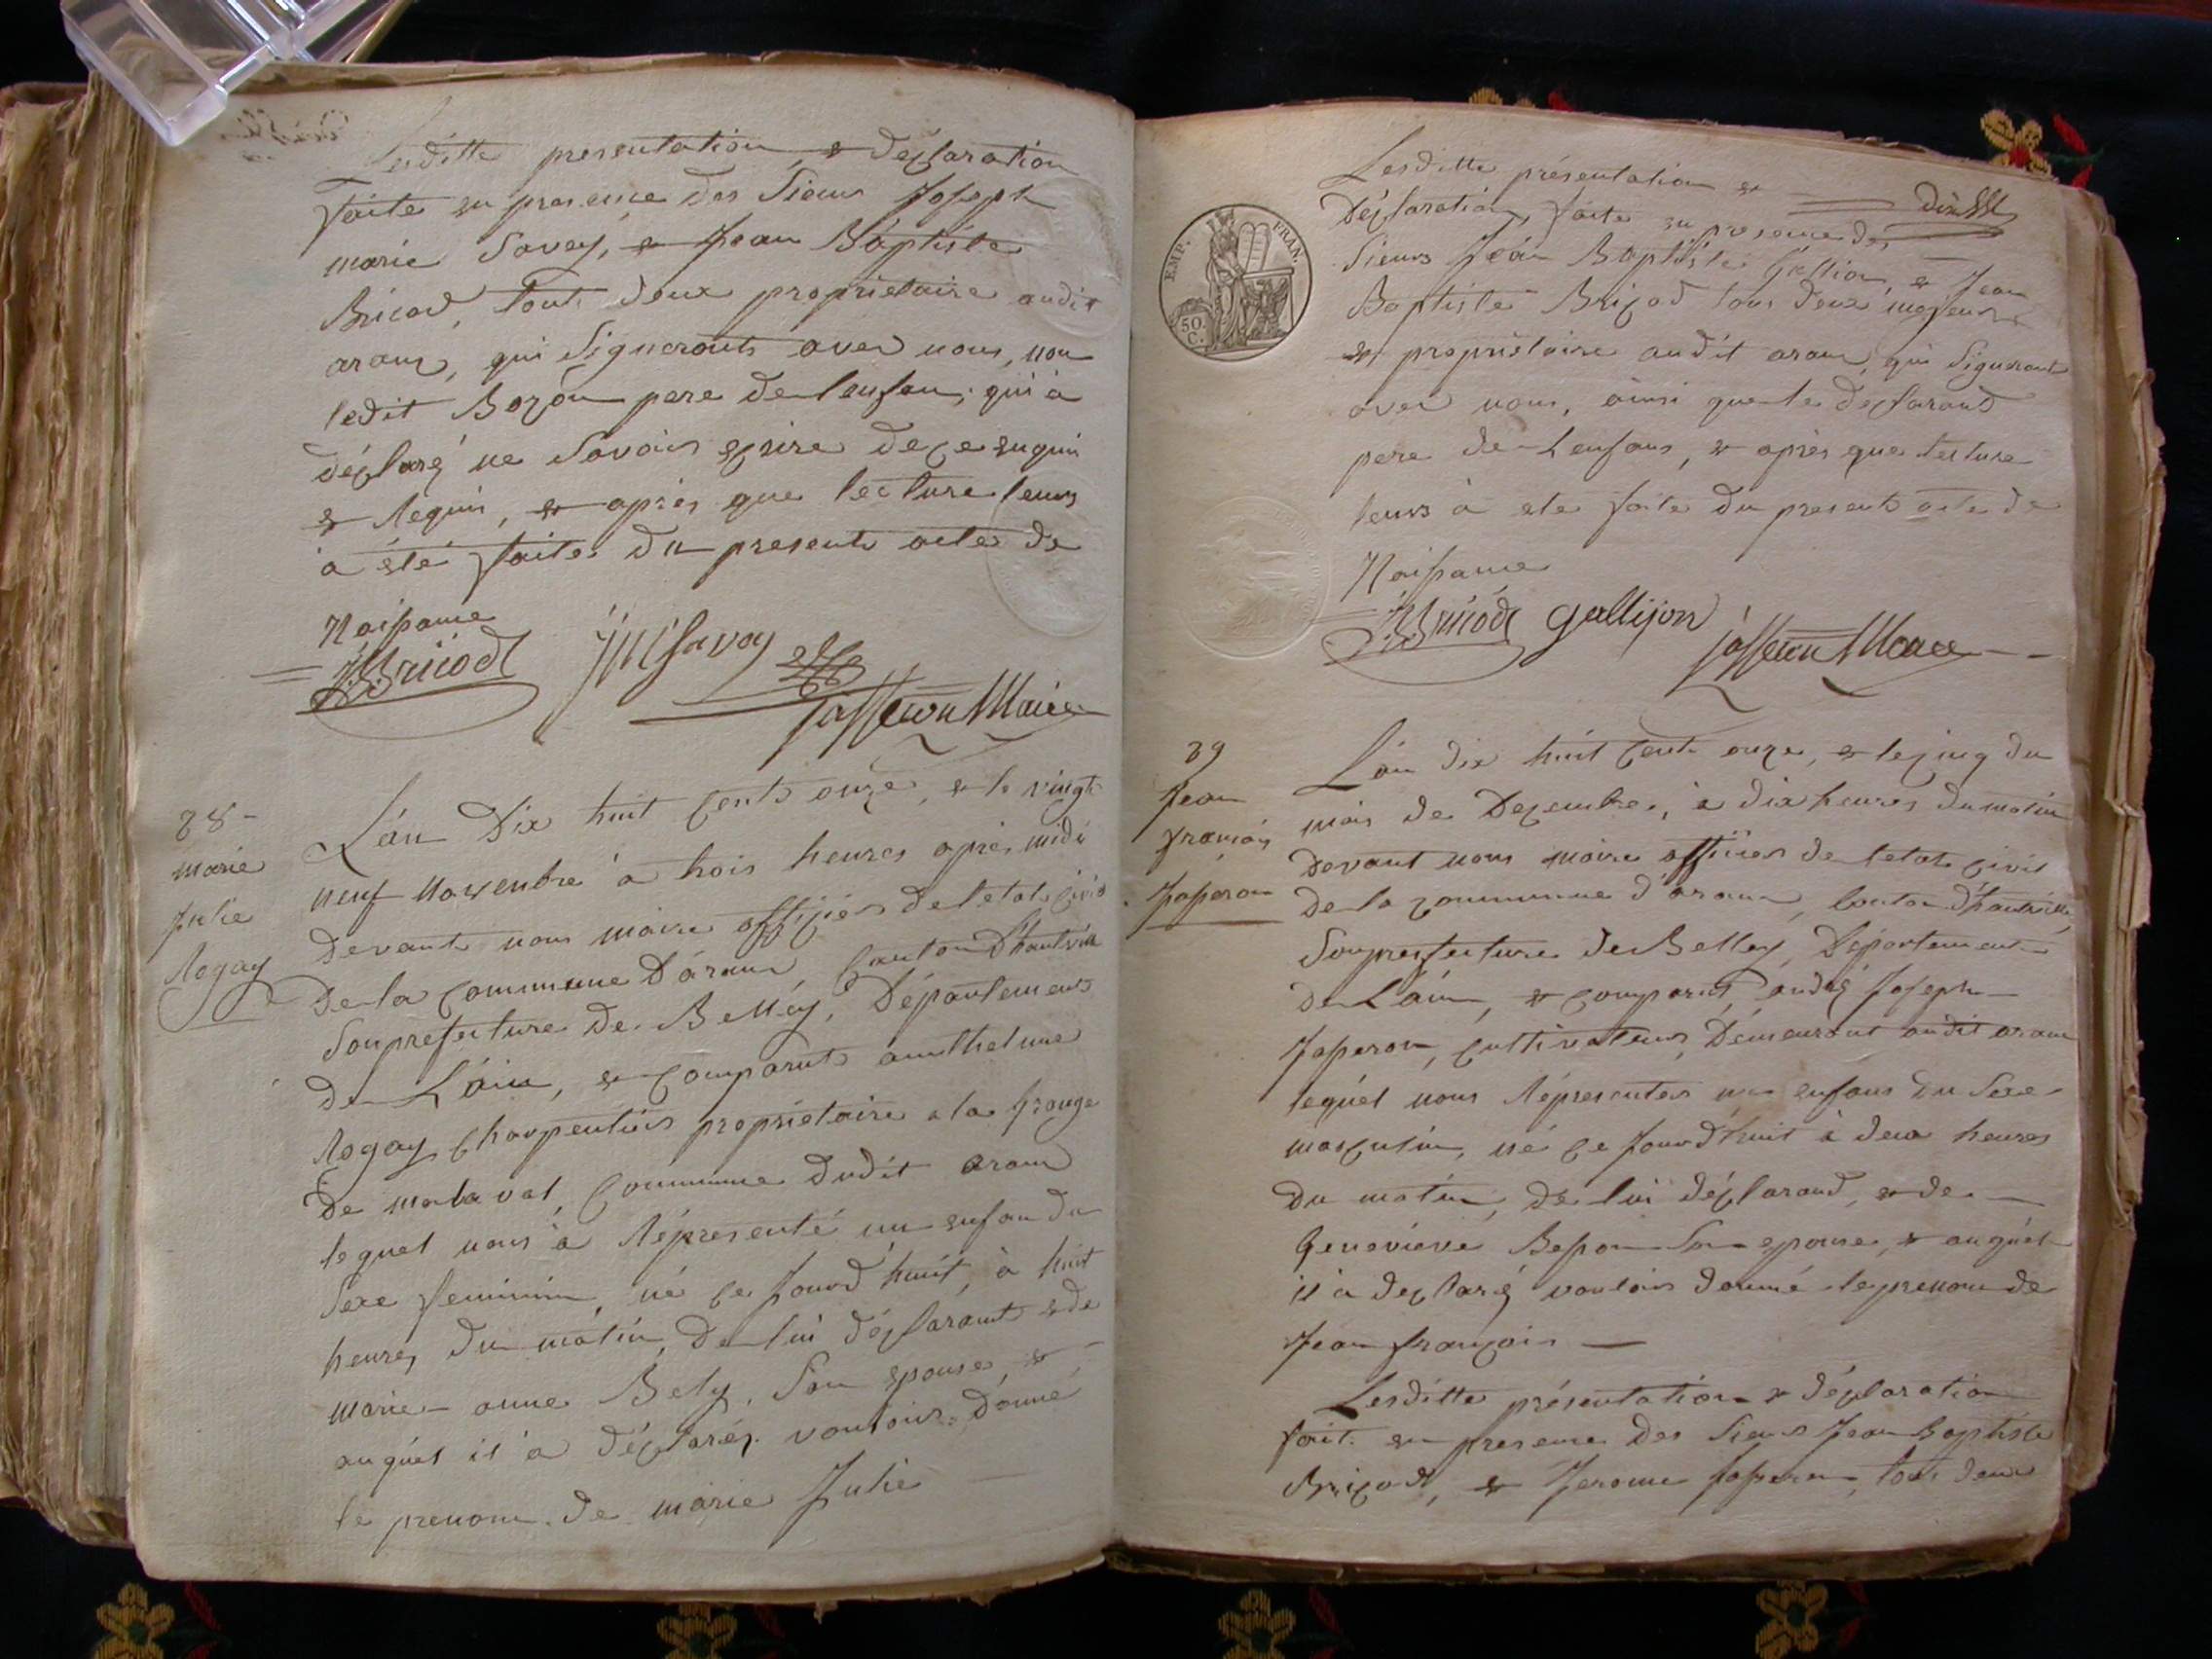 Lesditte presentation & déclaration
faite en presence des Sieurs Joseph
marie Savey, & Jean Baptiste
Bricod, tout deux proprietaire audit
aranc, qui signeronts avec nous, non
ledit Bozon pere de lenfan, qui à
déclaré ne Savoir ecrire de ce enquis
& Requis, & après que lecture leurs
à été faites du present acte de
Naissance
JBBricod JMSavey
Jasseron Maire
28
marie
Julie
Rogay
L'an Dix huit cents onze, & le vingt
neuf Novembre à trois heures après midi
Devant nous maire officier de letat civil
De la Commune D'aranc, Canton D'hauteville
Souprefecture De Belley, Département
De L'ain, & comparut anthelme
Rogay charpentier proprietaire a la Grange
De malaval, Commune dudit aranc
lequel nous à Répresenté un enfan du
Sexe feminin, né ce Jourd'huit, à huit
heures du matin, De lui déclarant & de
marie-anne Bely, Son epouse, &
auquel il à déclaréz vouloir donné
le prenom de marie Julie
Lesditte présentation &
Déclaration, faite en presence des
Sieurs Jean Baptiste Gallion, & Jean
Baptiste Bricod tous deux majeurs
& proprietaire audit aranc, qui Signeront
avec nous, ainsi que le déclarand
pere de Lenfans, & après que lecture
leurs à ete faite du present acte de
Naissance
EMP. FRAN.
50. C.
JBBricod gallijon Jasseron Maire
29
Jean
françois
Jasseron
L'an dix huit cents onze, & le cinq du
mois de Decembre, à dix heures du matin
Devant nous maire officier de letat civil
De la commune d'aranc, Canton d'hauteville,
Souprefecture de Belley, Département
De L'ain, & comparut, andré Joseph
Jasseron, cultivateur, Démeurant audit aranc
lequel nous Répresenter un enfans du Sexe
masculin, né ce Jourd'huit à deux heures
Du matin, de lui déclarand, & de
Genevieve Besson Son epouse, & auquel
il à déclaré vouloir donné le prenom de
Jean françois
Lesditte présentation & déclaration
fait en presence des Sieurs Jean Baptiste
Bricod, & Jerome Jasseron, tout deux